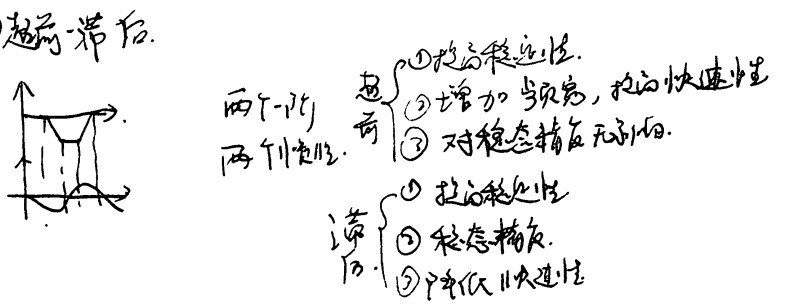 超前-滞后.
两个一阶
两个惯性.
超前
①提高稳定性.
②增加频宽，提高快速性
③对稳态精度无影响.
滞后.
①提高稳定性
②稳态精度.
③降低快速性